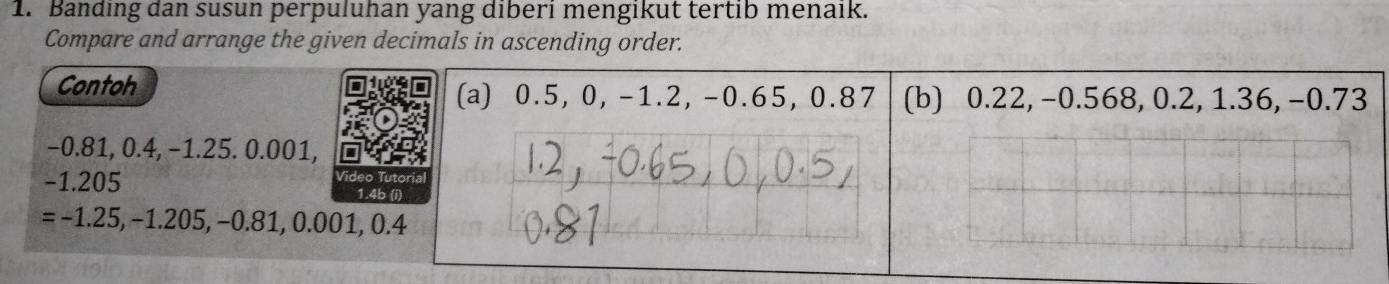 1. Banding dan susun perpuluhan yang diberi mengikut tertib menaik.
Compare and arrange the given decimals in ascending order.
Contoh
-0.81, 0.4, -1.25. 0.001,
-1.205
= -1.25, -1.205, -0.81, 0.001, 0.4
Video Tutorial
1.4b (i)
(a) 0.5, 0, -1.2, -0.65, 0.87
1.2, -0.65, 0, 0.5,
0.87
(b) 0.22, -0.568, 0.2, 1.36, -0.73